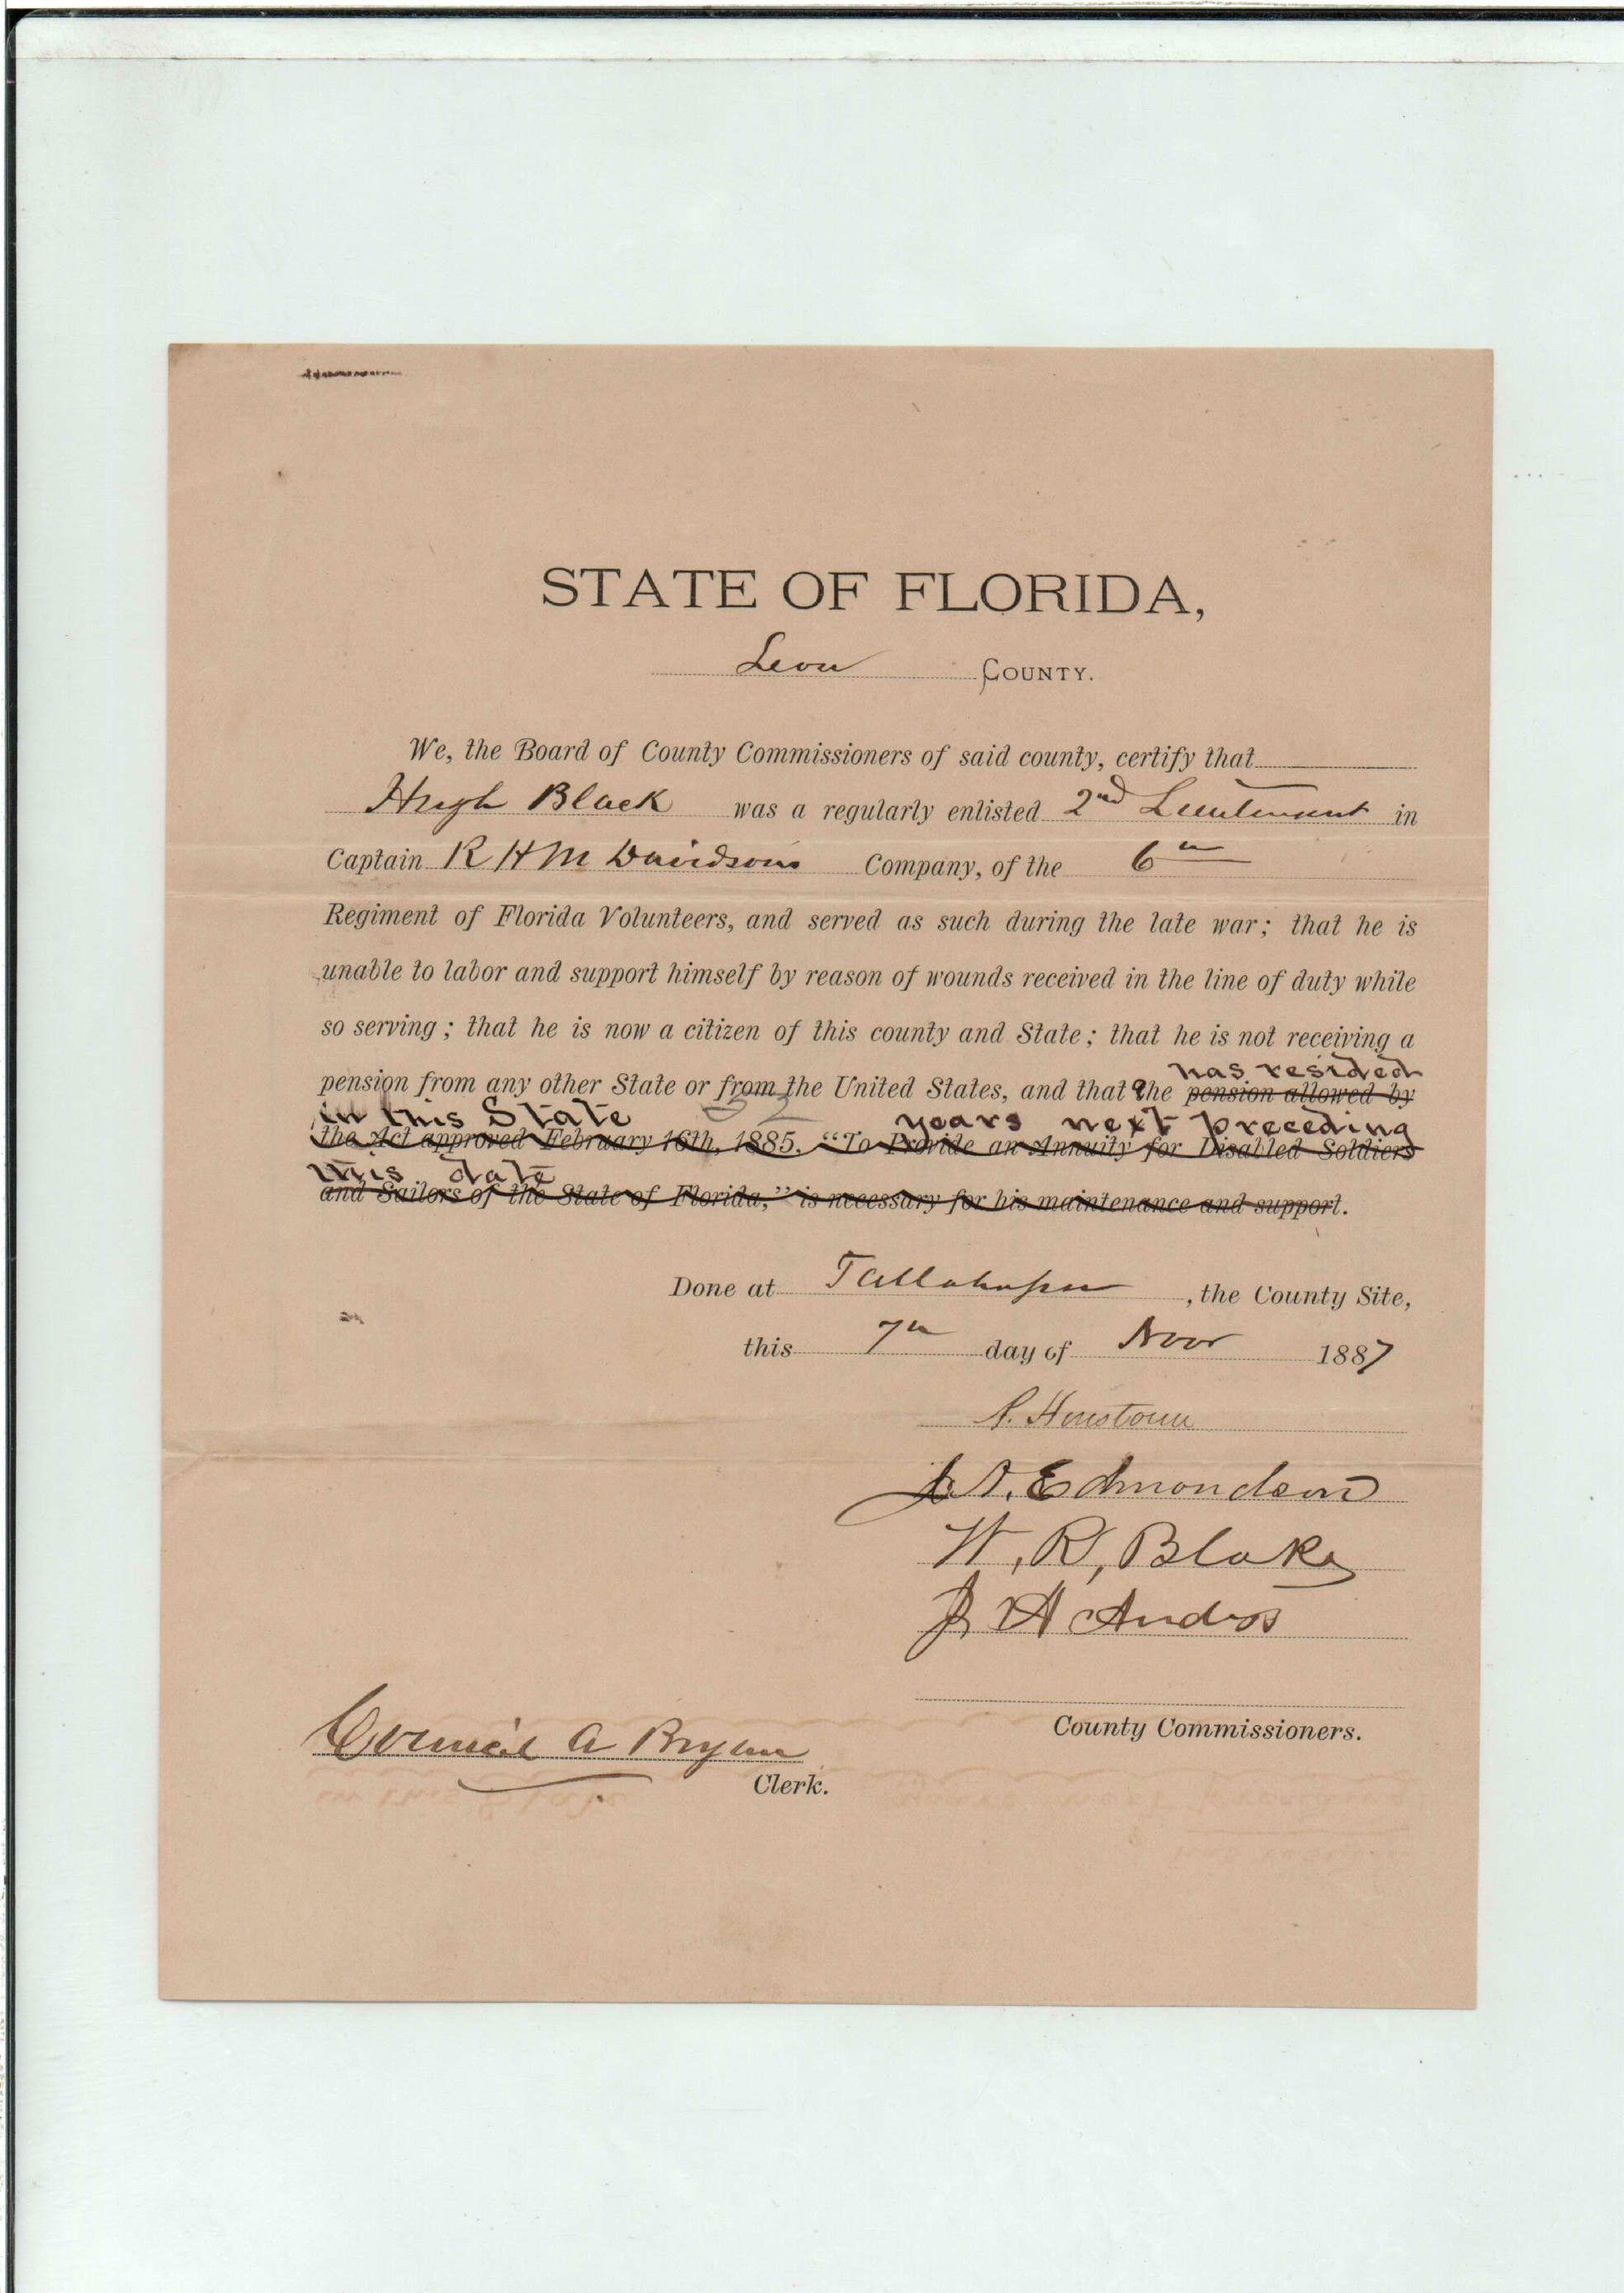 STATE OF FLORIDA,
Leon COUNTY.
We, the Board of County Commissioners of said county, certify that
Hugh Black was a regularly enlisted 2nd Lieutenant in
Captain R H M Davidsons Company, of the 6th
Regiment of Florida Volunteers, and served as such during the late war; that he is
unable to labor and support himself by reason of wounds received in the line of duty while
so serving; that he is now a citizen of this county and State; that he is not receiving a
has resided
pension from any other State or from the United States, and that the pension allowed by
in this State 32 years next preceding
the Act approved February 16th, 1885. "To Provide an Annuity for Disabled Soldiers
this date
and Sailors of the State of Florida," is necessary for his maintenance and support.
Done at Tallahassee, the County Site,
this 7th day of Nov 1887
Houstoun
Edmondson
W. R, Blake
J A Andros
County Commissioners.
Council A Bryan
Clerk.